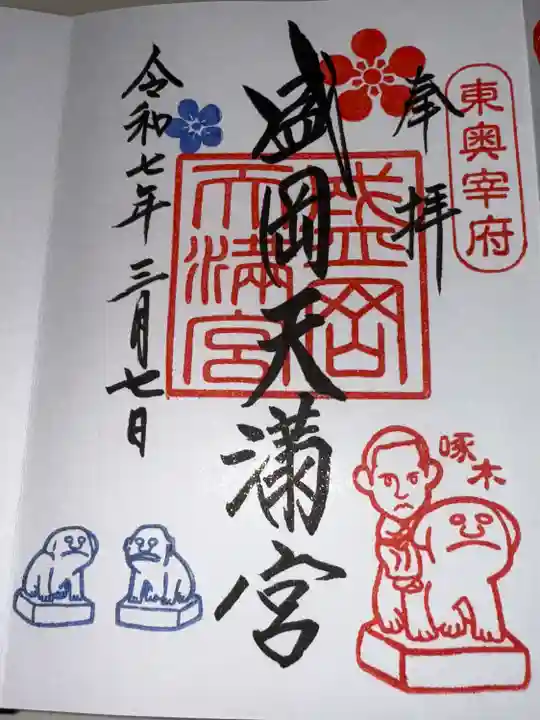 東奥宰府
奉拝
盛岡天満宮
盛岡
天満宮
令和七年 三月七日
啄木